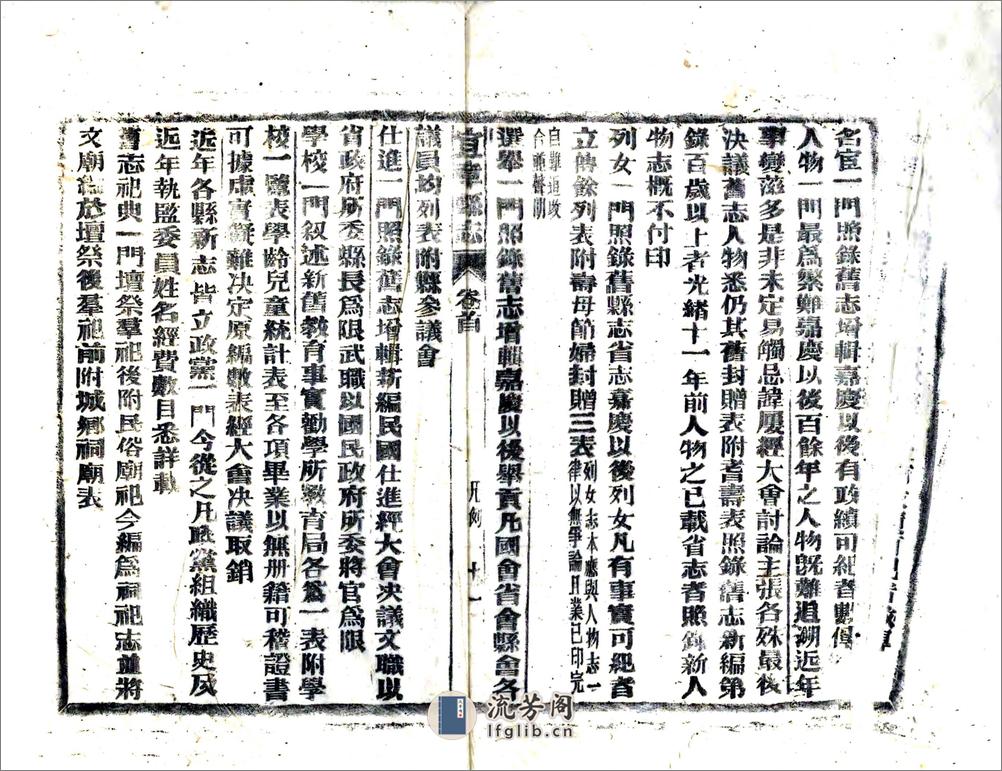 名宦一門照錄舊志增輯嘉慶以後有政績可紀者數傳
人物一門最為繁難嘉慶以後百餘年之人物既難追溯近年
事變滋多是非未定易觸忌諱屢經大會討論主張各殊最後
決議舊志人物悉仍其舊封贈表附耆壽表照錄舊志新編第
錄百歲以上者光緒十一年前人物之已載省志者照錄新人
物志概不付印
列女一門照錄舊縣志省志嘉慶以後列女凡有事實可紀者
立傳餘列表附壽母節婦封贈三表列女志本應與人物志一
律以無爭論且業已印完
自難追改
合並聲明
選舉一門照錄舊志增輯嘉慶以後舉貢凡國會省會縣會各
宜章縣志 卷首 凡例 十一
議員均列表附縣參議會
仕進一門照錄舊志增輯新編民國仕進經大會決議文職以
省政府所委縣長為限武職以國民政府所委將官為限
學校一門叙述新舊教育事實勸學所教育局各為一表附學
校一覽表學齡兒童統計表至各項畢業以無册籍可稽證書
可據虛實礙難決定原編數表經大會決議取銷
近年各縣新志皆立政黨一門今從之凡政黨組織歷史及
近年執監委員姓名經費數目悉詳載
舊志祀典一門壇祭羣祀後附民俗廟祀今編為祠祀志並將
文廟 於壇祭後羣祀前附城鄉祠廟表
流芳阁
lfglib.cn